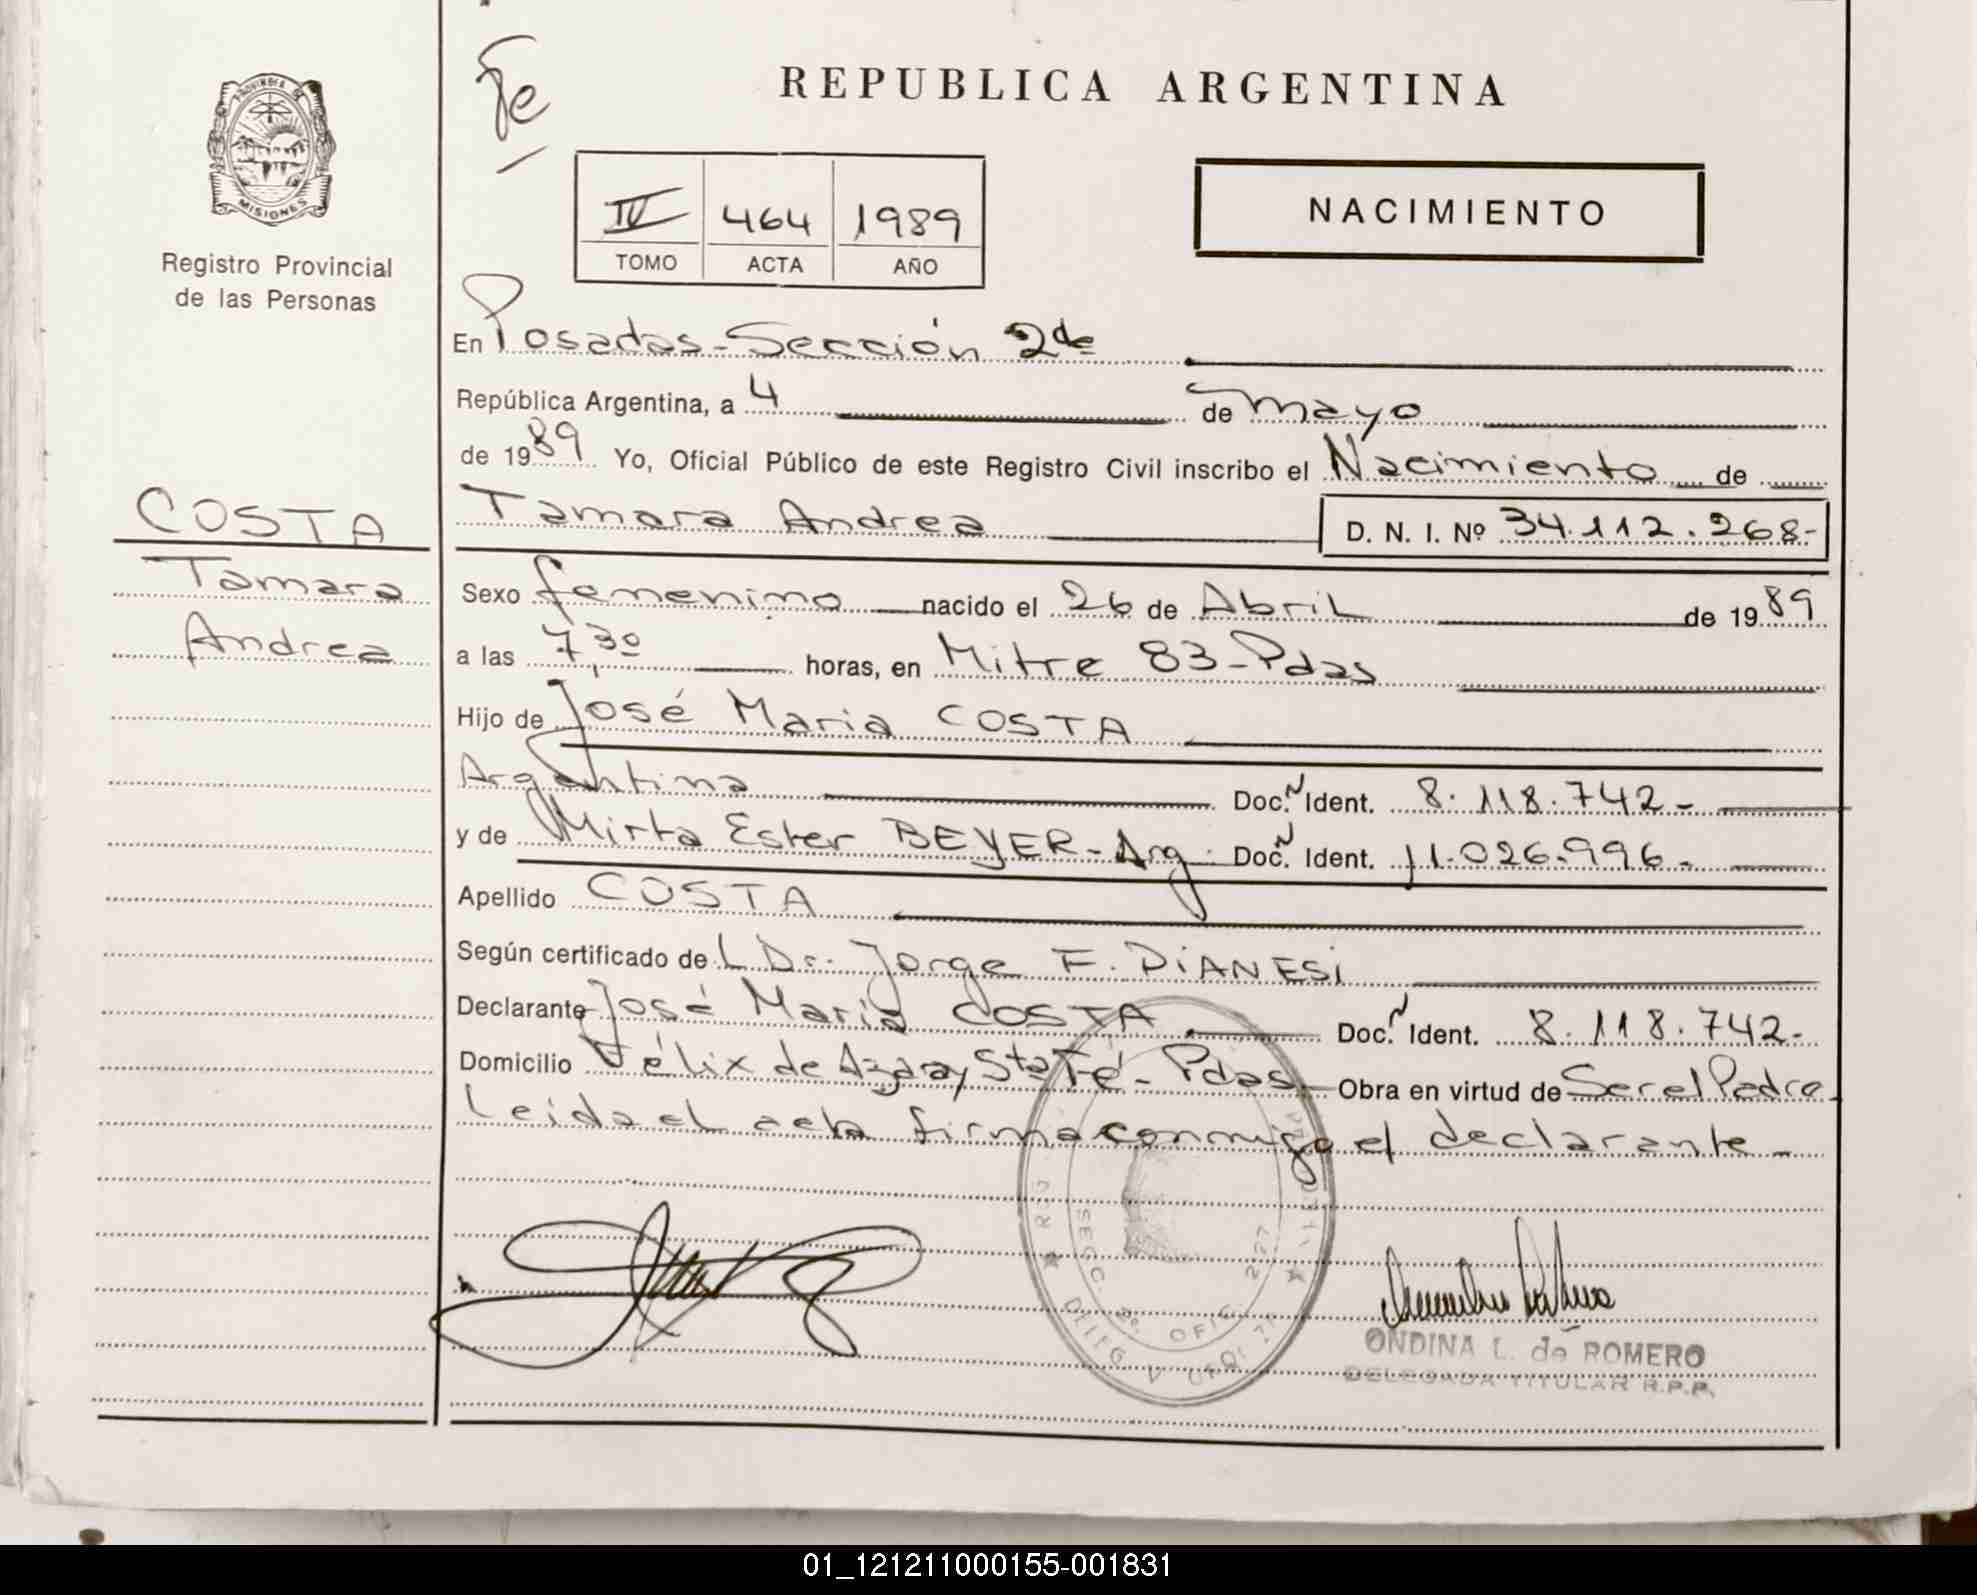 PROVINCIA DE
MISIONES
Registro Provincial
de las Personas
COSTA
Tamara
Andrea
Fe
REPUBLICA ARGENTINA
IV 464 1989
TOMO ACTA AÑO
NACIMIENTO
En Posadas-Sección 2da
República Argentina, a 4 de Mayo
de 1989 Yo, Oficial Público de este Registro Civil inscribo el Nacimiento de
Tamara Andrea D. N. I. Nº 34.112.268.-
Sexo femenino nacido el 26 de Abril de 1989
a las 7,30 horas, en Mitre 83-Pdas
Hijo de José Maria COSTA
Argentina Doc. Ident. 8.118.742-
y de Mirta Ester BEYER-Arg. Doc. Ident. 11.026.996.-
Apellido COSTA
Según certificado de L Dr. Jorge F. DiANESi
Declarante José Maria COSTA Doc. Ident. 8.118.742-
Domicilio Félix de Azara y Sta Fé- Pdas- Obra en virtud de Ser el Padre-
Leida el acta firma conmigo el declarante-
SECC. 2º. OFIC. 227
ONDINA L. de ROMERO
DELEGADA TITULAR R.P.P.
01_121211000155-001831